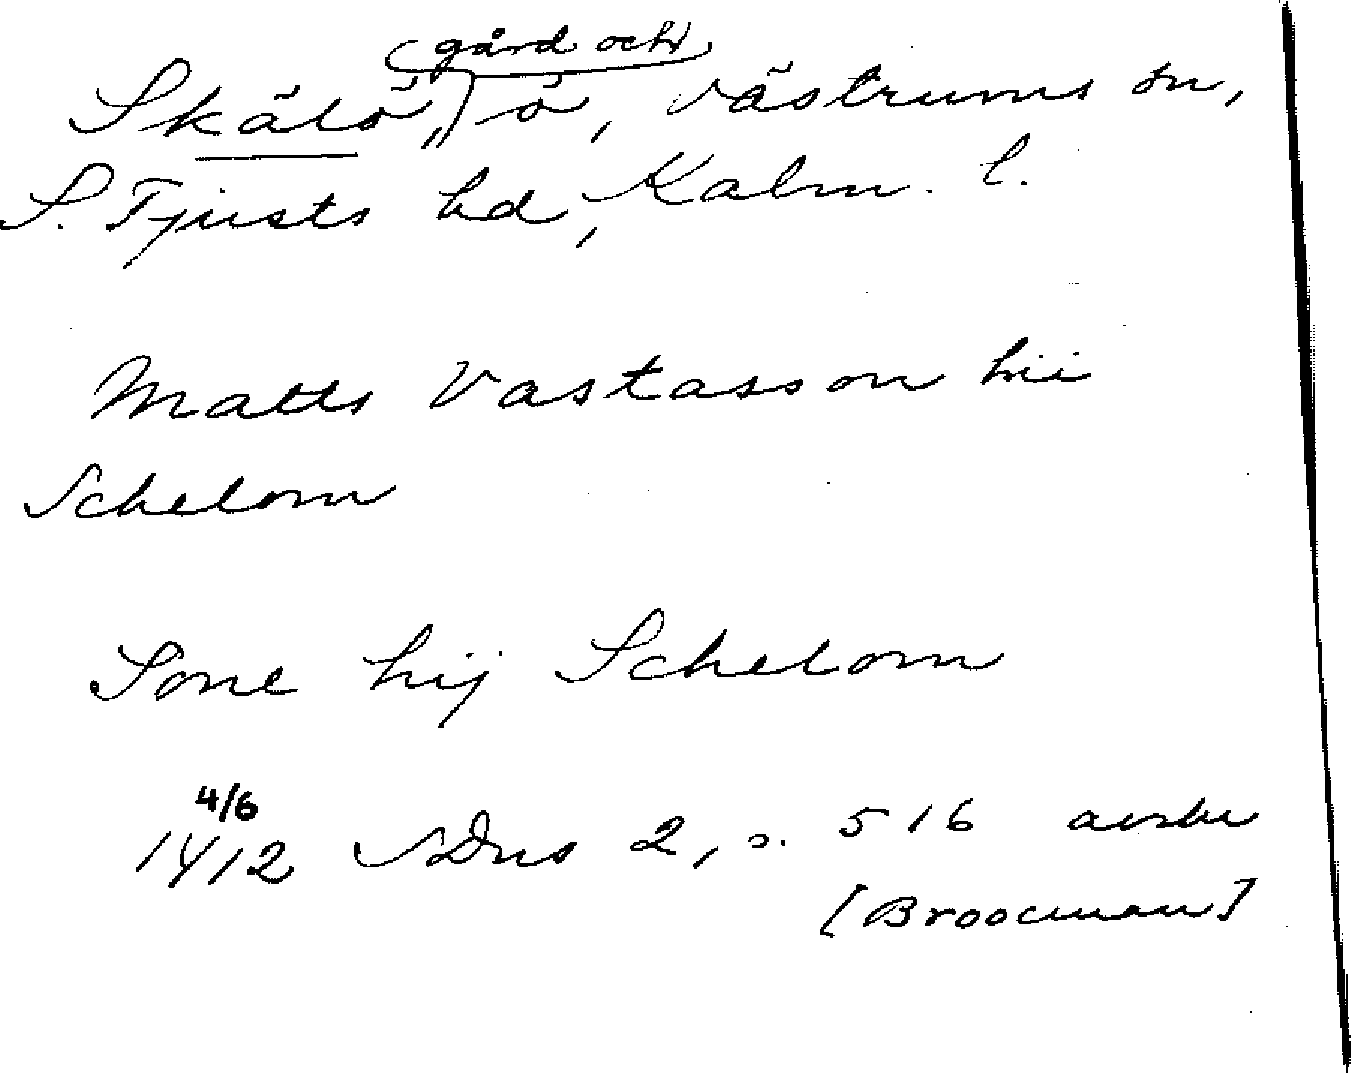 Skälö, gård och ö, Västrums sn,
S. Tjusts hd, Kalm. l.
Matts Vastasson hii
Schelom
Sone hij Schelom
4/6
1412 SDns 2, s. 516 avskr
[Broocman]